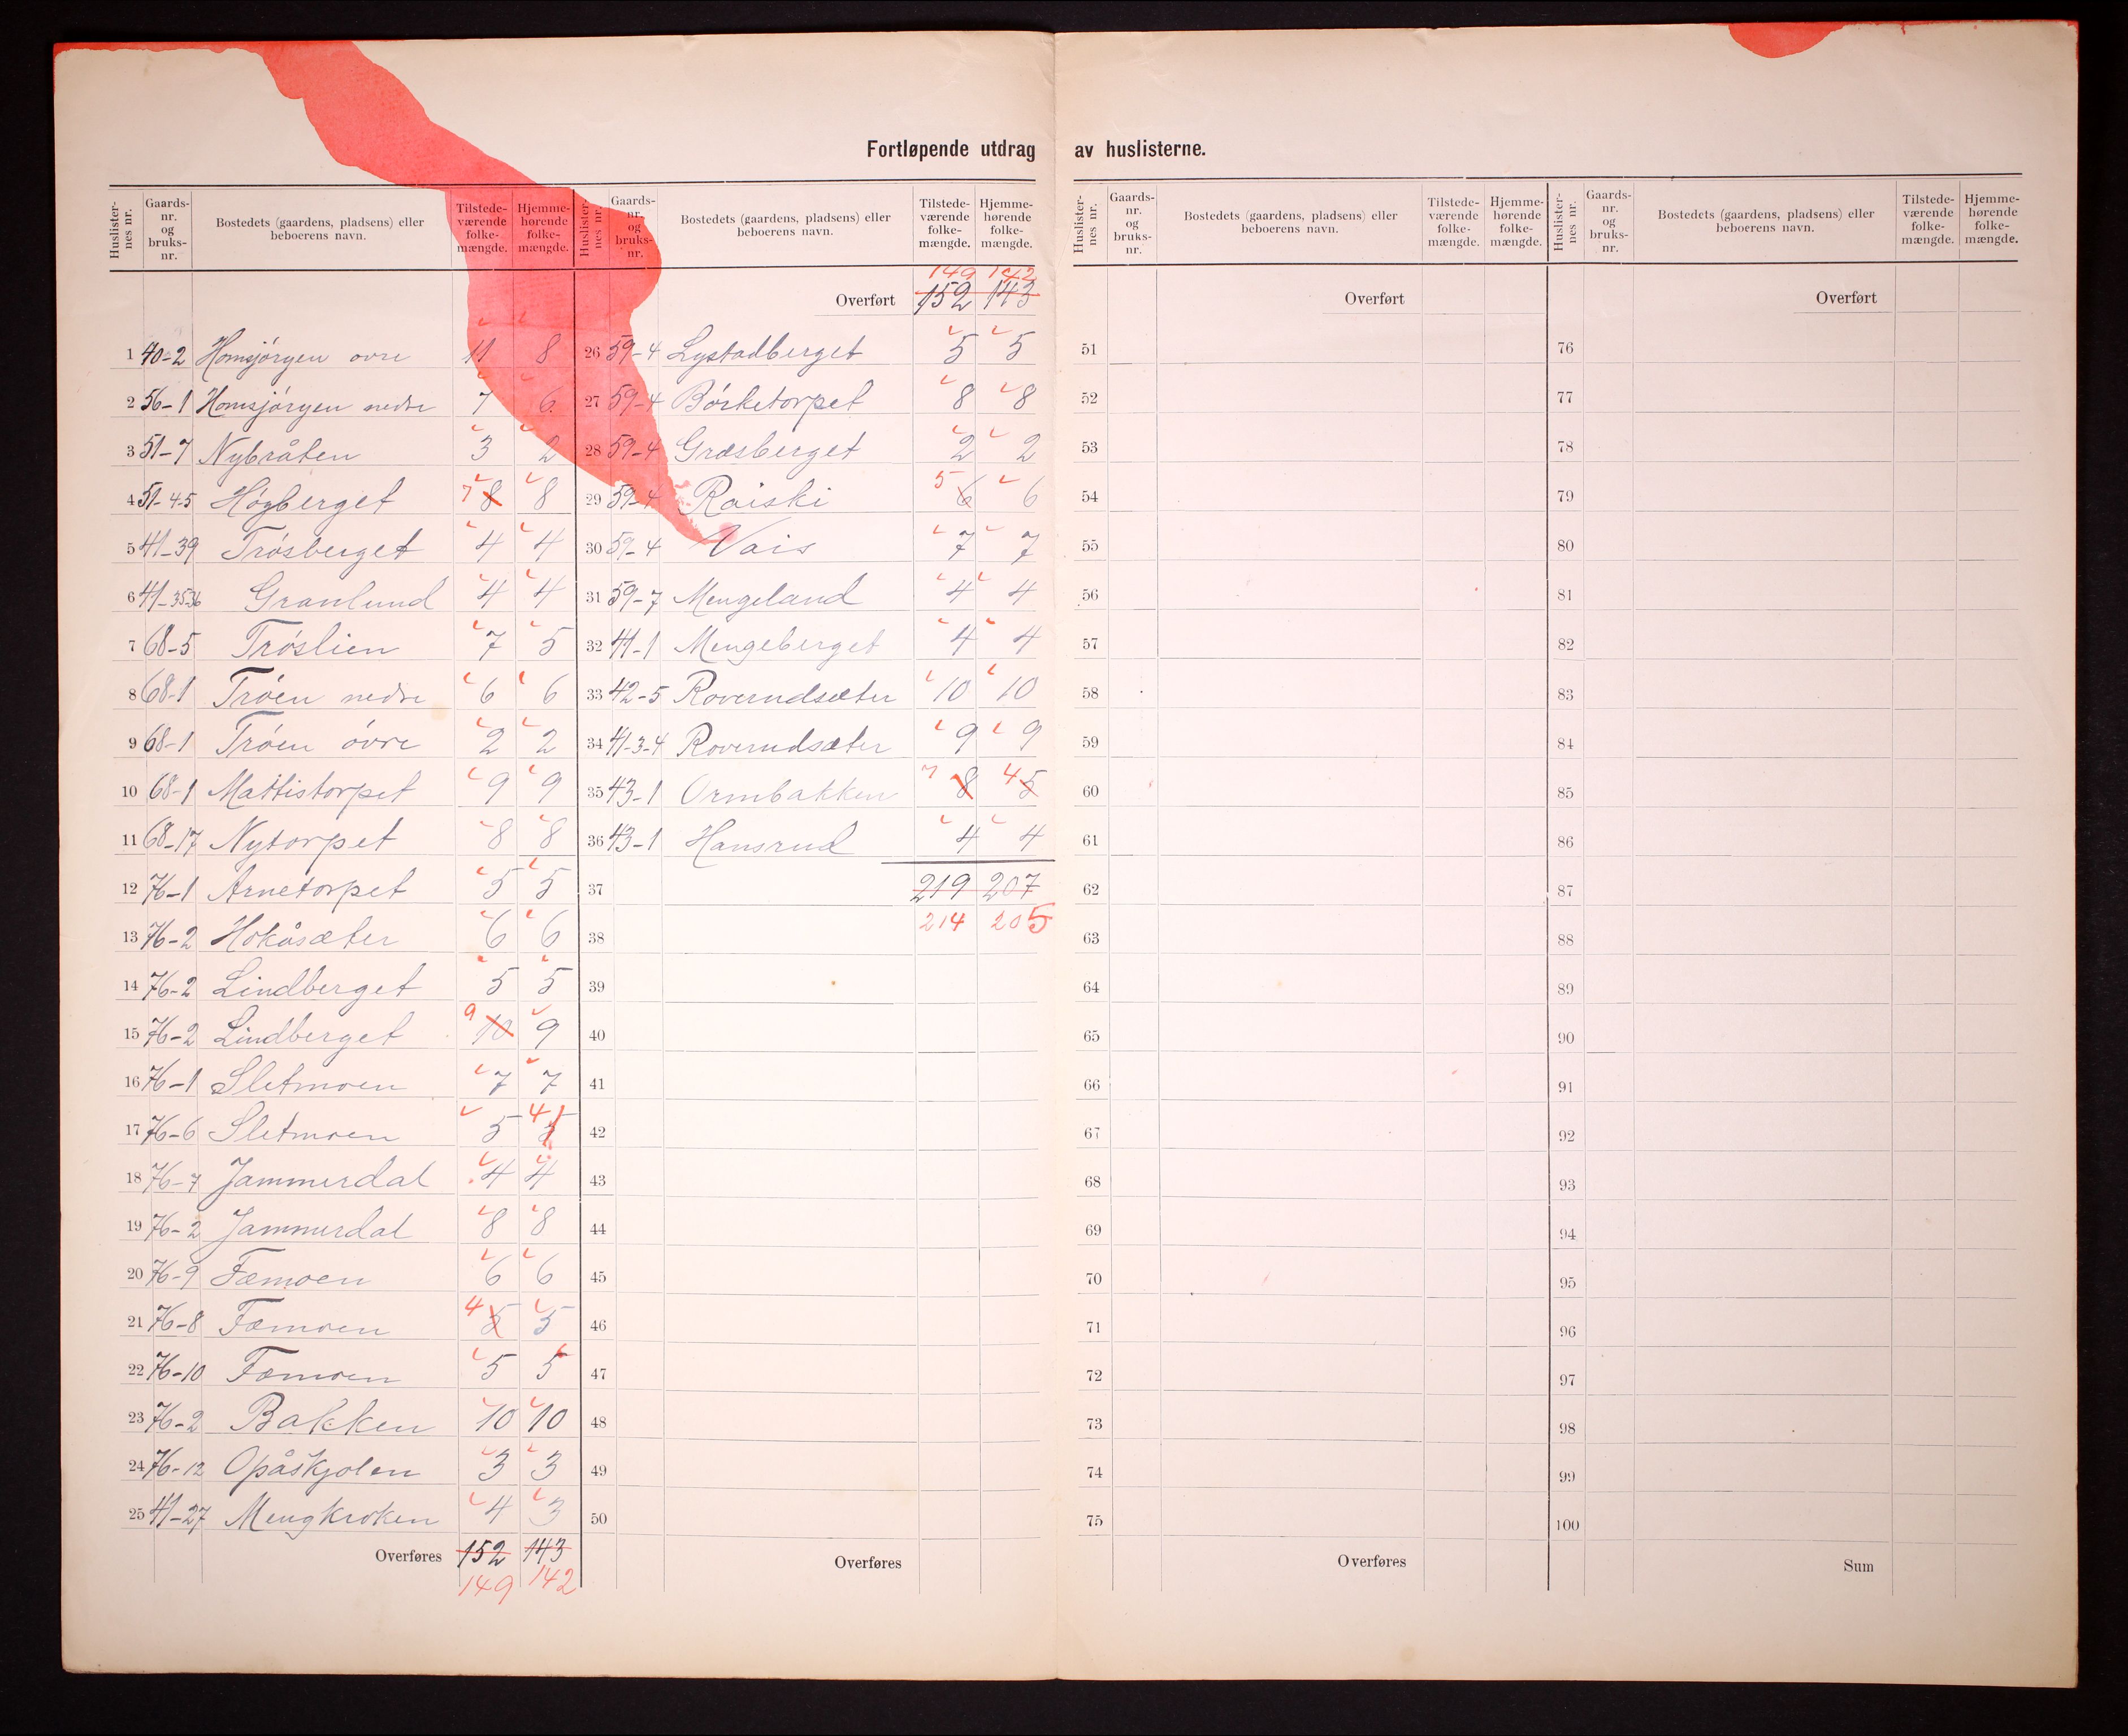 Fortløpende utdrag av huslisterne.
Huslister-nes nr. | Gaards-nr. og bruks-nr. | Bostedets (gaardens, pladsens) eller beboerens navn. | Tilstede-værende folke-mængde. | Hjemme-hørende folke-mængde.
1 40-2 Homsjørgen ovre 11 8
2 56-1 Homsjørgen nedre 7 6
3 51-7 Nybråten 3 2
4 51-4-5 Høgberget 7 8 8
5 41-39 Trøsberget 4 4
6 41-35-36 Granlund 4 4
7 68-5 Trøslien 7 5
8 68-1 Trøen nedre 6 6
9 68-1 Trøen øvre 2 2
10 68-1 Mattistorpet 9 9
11 68-17 Nytorpet 8 8
12 76-1 Arnetorpet 5 5
13 76-2 Hokåsæter 6 6
14 76-2 Lindberget 5 5
15 76-2 Lindberget 9 10 9
16 76-1 Sletmoen 7 7
17 76-6 Sletmoen 5 4 5
18 76-7 Jammerdal 4 4
19 76-2 Jammerdal 8 8
20 76-9 Fæmoen 6 6
21 76-8 Fæmoen 4 5 5
22 76-10 Fæmoen 5 5
23 76-2 Bakken 10 10
24 76-12 Opåskjolen 3 3
25 41-27 Mengkroken 4 3
Overføres 152 143
149 142
Huslister-nes nr. | Gaards-nr. og bruks-nr. | Bostedets (gaardens, pladsens) eller beboerens navn. | Tilstede-værende folke-mængde. | Hjemme-hørende folke-mængde.
149 142
Overført 152 143
26 59-4 Lystadberget 5 5
27 59-4 Børketorpet 8 8
28 59-4 Græsberget 2 2
29 59-4 Raiski 5 6 6
30 59-4 Vais 7 7
31 59-7 Mengeland 4 4
32 41-1 Mengeberget 4 4
33 42-5 Roverudsæter 10 10
34 41-3-4 Roverudsæter 9 9
35 43-1 Ormbakken 7 8 4 5
36 43-1 Hansrud 4 4
37 219 207
38 214 205
39
40
41
42
43
44
45
46
47
48
49
50
Overføres
Huslister-nes nr. | Gaards-nr. og bruks-nr. | Bostedets (gaardens, pladsens) eller beboerens navn. | Tilstede-værende folke-mængde. | Hjemme-hørende folke-mængde.
Overført
51
52
53
54
55
56
57
58
59
60
61
62
63
64
65
66
67
68
69
70
71
72
73
74
75
Overføres
Huslister-nes nr. | Gaards-nr. og bruks-nr. | Bostedets (gaardens, pladsens) eller beboerens navn. | Tilstede-værende folke-mængde. | Hjemme-hørende folke-mængde.
Overført
76
77
78
79
80
81
82
83
84
85
86
87
88
89
90
91
92
93
94
95
96
97
98
99
100
Sum